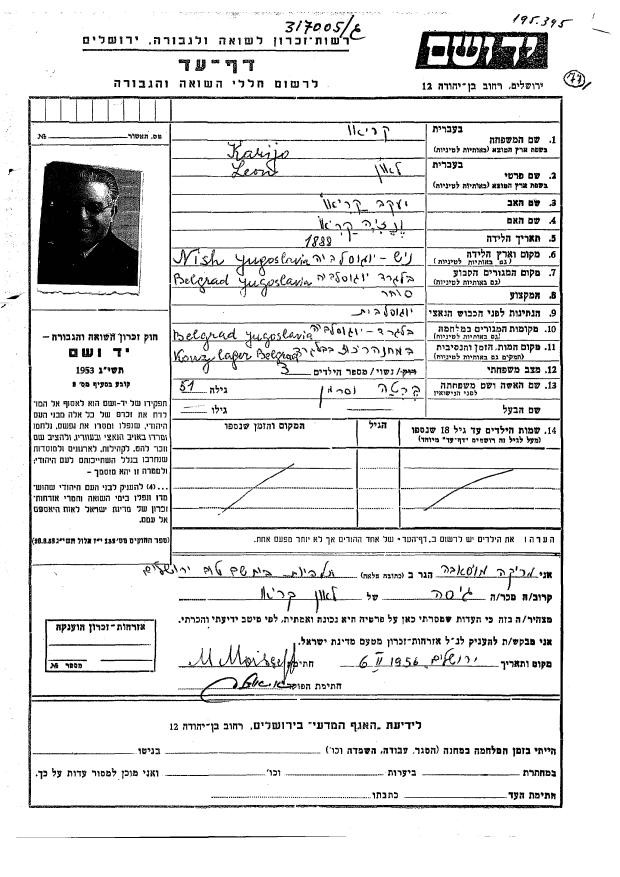 317005/ג
195.395
רשות-זכרון לשואה ולגבורה, ירושלים
יד ושם
דף-עד
לרשום חללי השואה והגבורה
ירושלים, רחוב בן-יהודה 12
77
מס. האשור №
בעברית קריאו
1. שם המשפחה
בשפת ארץ המוצא (באותיות לטיניות) Karijo
בעברית לאון
2. שם פרטי Leon
בשפת ארץ המוצא (באותיות לטיניות)
3. שם האב יעקב קריאו
4. שם האם קריאו
5. תאריך הלידה 1888
6. מקום וארץ הלידה (גם באותיות לטיניות) ניש - יוגוסלביה Nish Yugoslavia
7. מקום המגורים הקבוע (גם באותיות לטיניות) בלגרד יוגוסלביה Belgrad Yugoslavia
8. המקצוע סוחר
9. הנתינות לפני הכבוש הנאצי יוגוסלבית
10. מקומות המגורים במלחמה (גם באותיות לטיניות) בלגרד - יוגוסלביה Belgrad Yugoslavia
11. מקום המות, הזמן והנסיבות (המקום גם באותיות לטיניות) במחנה ריכוז בבלגרד Konzlager Belgrad
12. מצב משפחתי רווק/ נשוי/ מספר הילדים 3
13. שם האשה ושם משפחתה לפני הנישואין ברטה גילה 51
שם הבעל גילו
14. שמות הילדים עד גיל 18 שנספו
(מעל לגיל זה רושמים "דף-עד" מיוחד)
הגיל
המקום והזמן שנספו
חוק זכרון השואה והגבורה —
יד ושם
תשי"ג 1953
קובע בסעיף מס' 2
תפקידו של יד-ושם הוא לאסוף אל המו־
לדת את זכרם של כל אלה מבני העם
היהודי, שנפלו ומסרו את נפשם, נלחמו
ומרדו באויב הנאצי ובעוזריו, ולהציב שם
וזכר להם, לקהילות, לארגונים ולמוסדות
שנחרבו בגלל השתייכותם לעם היהודי;
ולמטרה זו יהא מוסמך —
... (4) להעניק לבני העם היהודי שהוש־
מדו ונפלו בימי השואה והמרי אזרחות־
זכרון של מדינת ישראל לאות היאספם
אל עמם.
(ספר החוקים מס' 132 י"ז אלול תשי"ג 28.8.53)
הערה: את הילדים יש לרשום ב"דף-עד" של אחד ההורים אך לא יותר מפעם אחת.
אני הגר ב (כתובת מלאה) תלפיות ירושלים
קרוב/ה מכר/ה גיסה של לאון קריאו
מצהיר/ה בזה כי העדות שמסרתי כאן על פרטיה היא נכונה ואמתית, לפי מיטב ידיעתי והכרתי.
אני מבקש/ת להעניק לנ"ל אזרחות-זכרון מטעם מדינת ישראל.
מקום ותאריך ירושלים 6 II 1956 חתימה
חתימת הפוקד
אזרחות-זכרון הוענקה
מספר №
לידיעת "האגף המדעי" בירושלים, רחוב בן-יהודה 12
הייתי בזמן המלחמה במחנה (הסגר, עבודה, השמדה וכו') בגיטו
במחתרת ביערות וכו' ואני מוכן למסור עדות על כך.
חתימת העד כתבתו